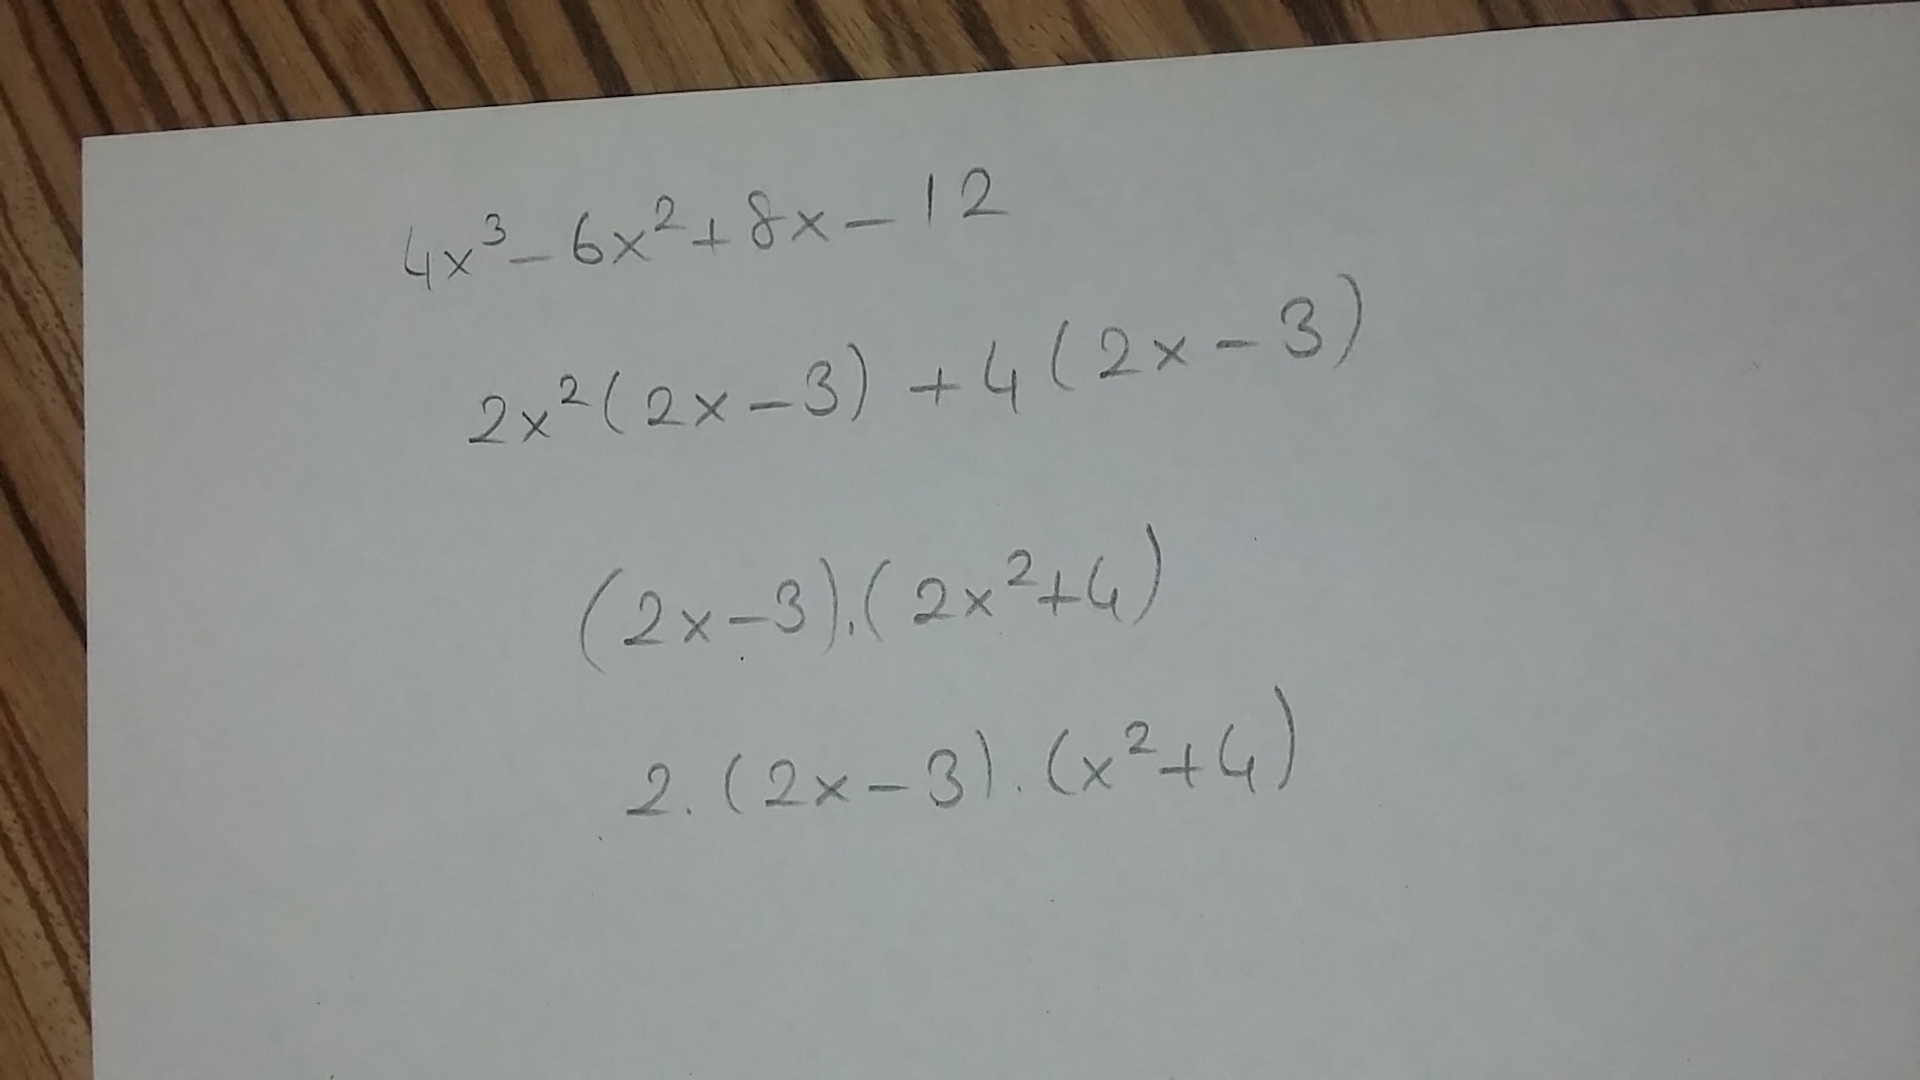 4x³-6x²+8x-12
2x²(2x-3)+4(2x-3)
(2x-3).(2x²+4)
2.(2x-3).(x²+4)